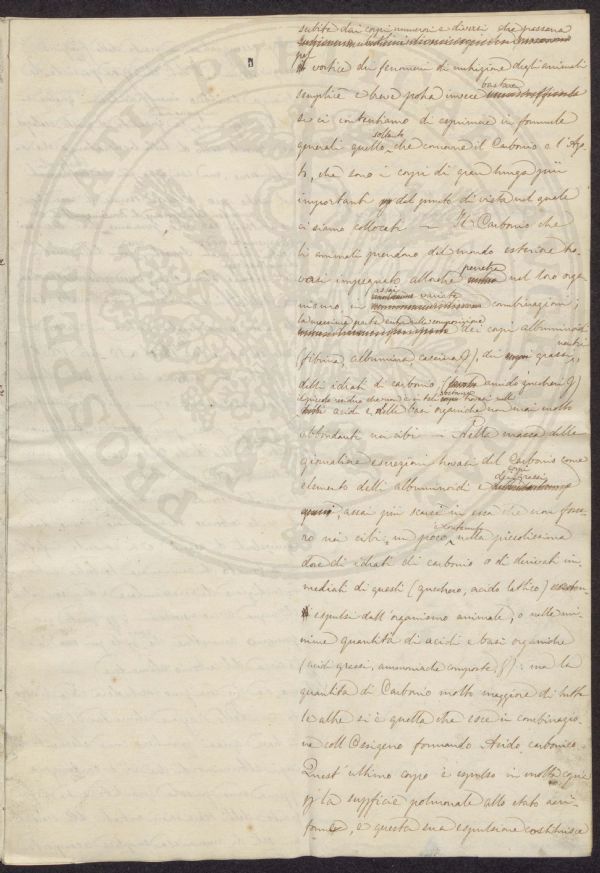 subite dai corpi numerosi e diversi che passano
pel
vortice dei fenomeni di nutrizione degli animali
semplice e breve potrà invece bastare
se ci contentiamo di esprimere in formule
generali quello soltanto che concerne il Carbonio e l'Azo-
to, che sono i corpi di gran lunga più
importanti dal punto di vista nel quale
ci siamo collocati — Il Carbonio che
li animali prendono dal mondo esteriore tro-
vasi impegnato allorchè penetra nel loro orga-
nismo in assai variate combinazioni;
la massima parte entra nella composizione dei corpi albuminoidi
(fibrina, albumina caseina &), di grassi neutri,
delli idrati di carbonio (amido zucchero &)
il piccolo residuo che non è in tali sostanze trovasi nelli
acidi e nelle basi organiche non mai molto
abbondanti nei cibi — Nella massa delle
giornaliere escrezioni trovasi del Carbonio come
elemento delli albuminoidi e dei corpi grassi
, assai più scarsi in essa che non fosse-
ro nei cibi, un poco contenuto nella piccolissima
dose di idrati di carbonio o di derivati im-
mediati di questi (zucchero, acido lattico)
espulsi dall'organismo animale, o nelle mi-
nime quantità di acidi e basi organiche
(acidi grassi, ammoniache composte, &): ma la
quantità di Carbonio molto maggiore di tutte
le altre si è quella che esce in combinazio-
ne coll'Ossigeno formando Acido carbonico.
Quest'ultimo corpo è espulso in molta copia
p la superficie polmonale allo stato aeri-
forme, e questa sua espulsione costituisce
PROSPERITATI PVBLI